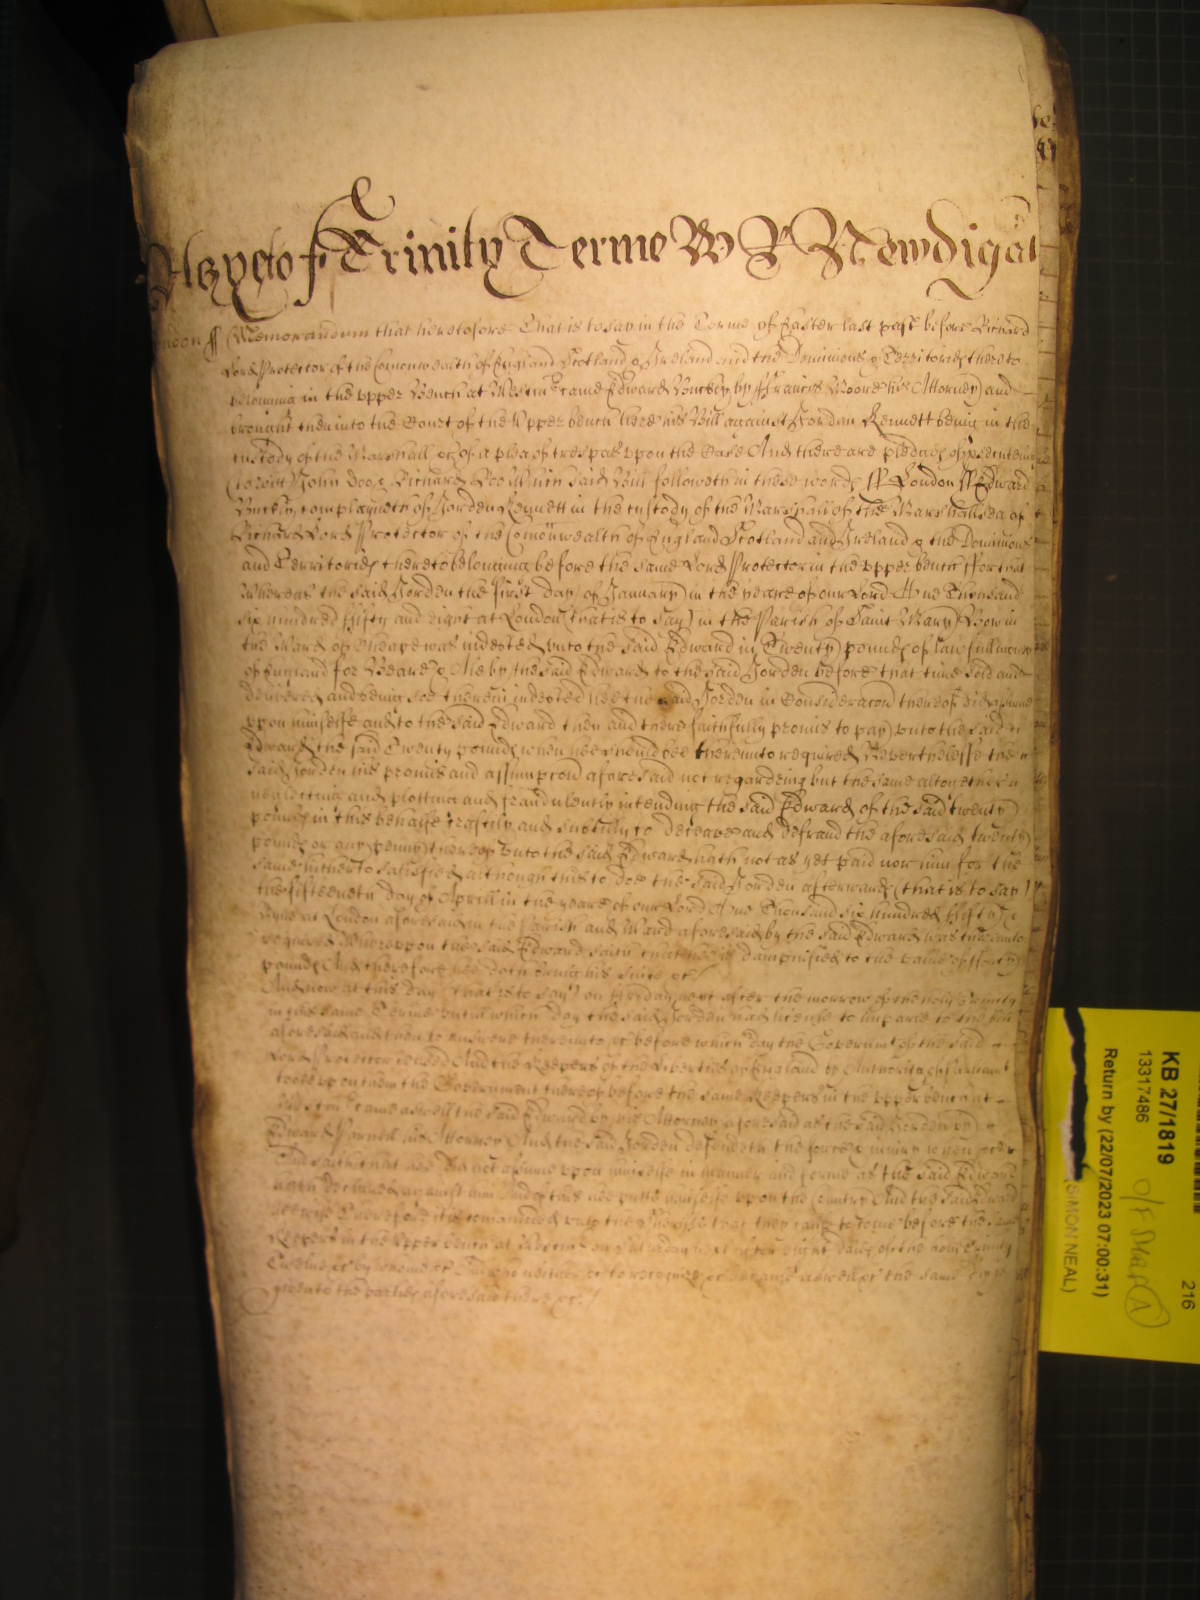 of Trinity Terme R Newdigat
Memorandum that heretofore That is to say in the Terme of Easter last past before Richard
Lord Protector of the Comonwealth of England Scotland & Ireland and the Dominions & Territories thereto
belonging in the upper Bench at Westmr came Edward Buckly by Francis Moore his Attorney and
brought then into the Court of the Upper bench here his Bill against Jordan Kennett being in the
custody of the Marshall &c of a plea of trespas upon the Case And there are pledges of prosecuteing
(to wit) John Doo & Richard Roo Which said Bill followeth in these words ss London ss Edward
Buckly complayneth of Jorden Kennett in the custody of the Marshall of the Marshallsea of
Richard Lord Protector of the Comonwealth of England Scotland and Ireland & the Dominions
and Territories thereto belonging before the same Lord Protector in the upper bench For that
Whereas the said Jorden the first day of January in the yeare of our Lord One Thousand
six hundred fifty and eight at London (that is to say) in the Parish of Saint Mary Bow in
the Ward of Cheape was indebted unto the said Edward in Twenty pounds of lawfull money
of England for Beare & Ale by the said Edward to the said Jorden before that time sold and
delivered and being soe therein indebted hee the said Jorden in Consideracon thereof did assume
upon himselfe and to the said Edward then and there faithfully promis to pay unto the said
Edward the said Twenty pounds when hee should bee thereunto required Neverthelesse the
said Jorden his promis and assumpcon aforesaid not regardeing but the same altogether
neglecting and plotting and fraudulently intending the said Edward of the said twenty
pounds in this behalfe craftily and subtilly to deceave and defraud the aforesaid twenty
pounds or any penny thereof unto the said Edward hath not as yet paid nor him for the
same hitherto satisfied although this to doe the said Jorden afterwards (that is to say)
the fifteeneth day of Aprill in the yeare of our Lord One Thousand six hundred fifty
Nyne at London aforesaid in the Parish and Ward aforesaid by the said Edward was thereunto
required Whereupon the said Edward saith that hee is dampnified to the value of
pounds And therefore hee doth bring his suite &c
And now at this day (that is to say) on Friday next after the morrow of the holy Trinity
in this same Terme untill which day the said Jorden had licence to imparle to the bill
aforesaid and then to answere thereunto &c before which day the Goverment of the said
Lord Protector ceased And the Keepers of the Liberties of England by Authority of Parliament
tooke upon them the Goverment thereof before the same Keepers in the upper bench at
Westmr came aswell the said Edward by his Attorney aforesaid as the said Jorden by
Edward Parnell his Attorney And the said Jorden defendeth the force & injury when &c
And saith that hee did not assume upon himselfe in manner and forme as the said Edward
hath declared against him And of this hee putts himselfe upon the Country And the said Edward
likewise Therefore it is comanded unto the Sheriffs that they cause to come before the same
Keepers in the upper bench at Westmr on Saturday next after eight daies of the holy Trinity
Twelve &c by whome &c And who neither &c to recognize &c because aswell &c the same day is
given to the parties aforesaid there &c
KB 27/1819
216
13317486
O/F
A
Return by (22/07/2023 07:00:31)
(SIMON NEAL)